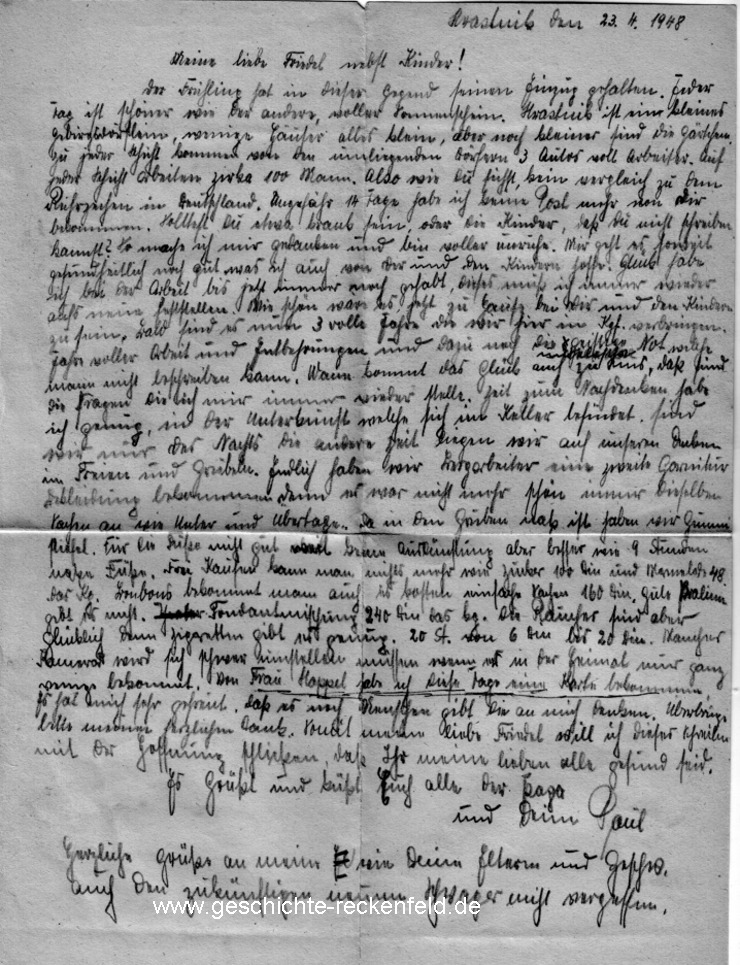 Krastnik den 23.4.1948
Meine liebe Friedel nebst Kinder!
Der Frühling hat in dieser Gegend seinen Einzug gehalten. Jeder
Tag ist schöner wie der andere, voller Sonnenschein. Krastnik ist ein kleines
Gebirgsdörflein, wenige Häuser alles klein, aber noch kleiner sind die Gärtchen.
Zu jeder Schicht kommen von den umliegenden Dörfern 3 Autos voll Arbeiter. Auf
jeder Schicht arbeiten zirka 100 Mann. Also wie du siehst, kein vergleich zu dem
Ruhrzechen in Deutschland. Ungefähr 14 Tage habe ich keine Post mehr von dir
bekommen. Solltest du etwa krank sein, oder die Kinder, daß du nicht schreiben
kannst? So mache ich mir gedanken und bin voller unruhe. Mir geht es
gesundheitlich noch gut, was ich auch von dir und den Kindern hoffe. Glück habe
ich bei der Arbeit bis jetzt immer noch gehabt, dieses muß ich immer wieder
aufs neue feststellen. Wie schön wäre es jetzt zu Hause bei dir und den Kindern
zu sein. Bald sind es nun 3 volle Jahre die wir hier in Kgf. verbringen.
Jahre voller Arbeit und Entbehrungen und dazu noch die Not, welche
mann nicht beschreiben kann. Wann kommt das Glück auch zu uns, daß sind
die Fragen die ich mir immer wieder stelle. Zeit zum Nachdenken habe
ich genug, in der Unterkunft welche sich im Keller befindet. Sind
wir nur des Nachts die andere Zeit liegen wir auf unseren Decken
im Freien und Grübeln. Endlich haben wir Bergarbeiter eine zweite Garnitur
Bekleidung bekommen denn es war nicht mehr schön immer dieselben
Sachen an wie Unter und Übertage. Da in den Gruben naß ist haben wir Gummi
stiefel. Für die Füße nicht gut weil keine Ausdünstung aber besser wie 9 Stunden
nasse Füße. Frei Kaufen kann man nichts mehr wie Zucker 100 din und Marmelade 48
das Kg. Bonbons bekommt man auch es kosten einfache Sachen 160 din, gute Pralinen
gibt es nicht. Fondantmischung 240 din das kg. Die Raucher sind aber
Glücklich denn Zigaretten gibt es genug. 20 St. von 6 din bis 20 din. Mancher
Kamerad wird sich schwer umstellen müssen wenn es in der Heimat nur ganz
wenig bekommt. Von Frau Happel habe ich diese Tage eine Karte bekommen,
Es hat mich sehr gefreut, daß es noch Menschen gibt die an mich denken. Überbringe
bitte meinen herzlichen Dank. Somit meine liebe Friedel will ich dieses schreiben
mit der Hoffnung schließen, daß Ihr meine lieben alle gesund seid.
Es Grüßt und küßt Euch alle der Papa
und Dein Paul
Herzliche Grüße an meine wie Deine Eltern und Geschw.
auch den zukünftigen neuen Schwager nicht vergessen.
www.geschichte-reckenfeld.de